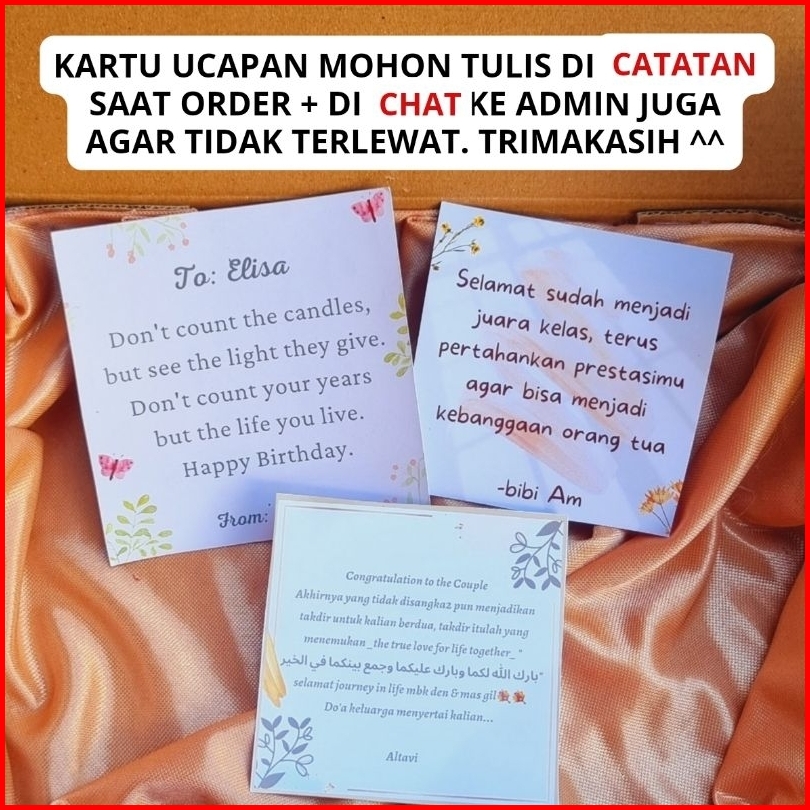 KARTU UCAPAN MOHON TULIS DI CATATAN
SAAT ORDER + DI CHAT KE ADMIN JUGA
AGAR TIDAK TERLEWAT. TRIMAKASIH ^^
To: Elisa
Don't count the candles,
but see the light they give.
Don't count your years
but the life you live.
Happy Birthday.
From:
Selamat sudah menjadi
juara kelas, terus
pertahankan prestasimu
agar bisa menjadi
kebanggaan orang tua
-bibi Am
Congratulation to the Couple
Akhirnya yang tidak disangka2 pun menjadikan
takdir untuk kalian berdua, takdir itulah yang
menemukan _the true love for life together_ "
"بارك الله لكما وبارك عليكما وجمع بينكما في الخير"
selamat journey in life mbk den & mas gil
Do'a keluarga menyertai kalian...
Altavi